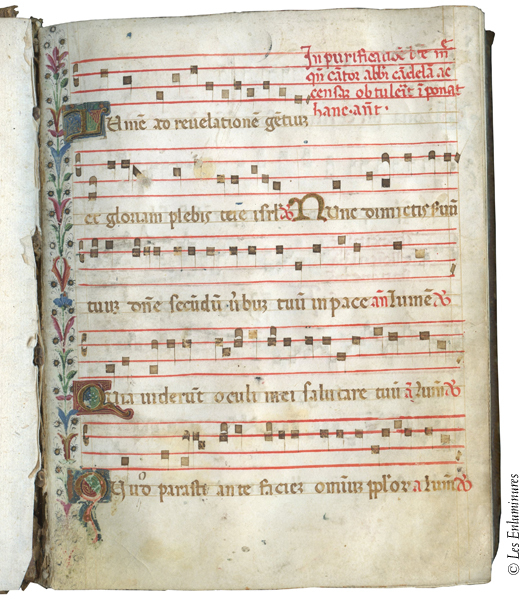 In purificatiōe btē mē
qn̄ cātor abbi cādelā ac
censā obtulerit īponat
hanc · ant̄ ·
Lumē ad revelationē gētiuz
et gloriam plebis tue isrl Nunc dimictis suū
tuuz dn̄e secundū ūbuz tuū in pace an̄ Lumē
Quia viderūt oculi mei salutare tuū a Lum̄
Quod parasti ante faciez omniuz pplor a Lum̄
© Les Enluminures